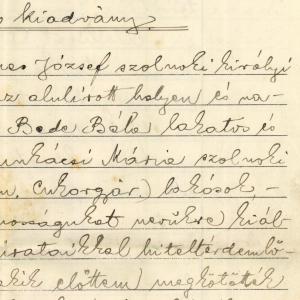 s kiadvány.
nes József szolnoki királyi
az alulirott helyen és na-
Bede Béla lakatos és
unkácsi Mária szolnoki
n, Cukorgyár.) lakósok, -
nosságukat nevükre kiál-
irataikkal hitelt érdemlő-
akik előttem megkötötték